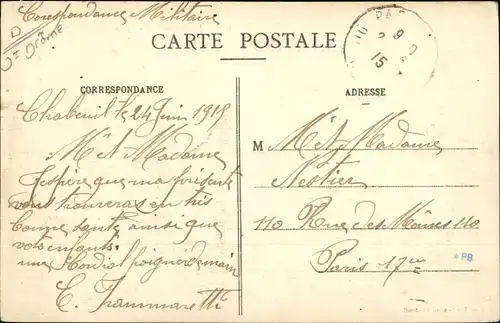 Correspondance Militaire
D
Drôme
CARTE POSTALE
CORRESPONDANCE
ADRESSE
Chabeuil le 24 Juin 1915
Mr et Madame
J'espère que ma présente
vous trouveras en très
bonne santé ainsi que
vos enfants.
une Cordial poignée de main
C.
M Mr et Madame
Nestier
110 Rue des Moines 110
Paris 17em
PB
15